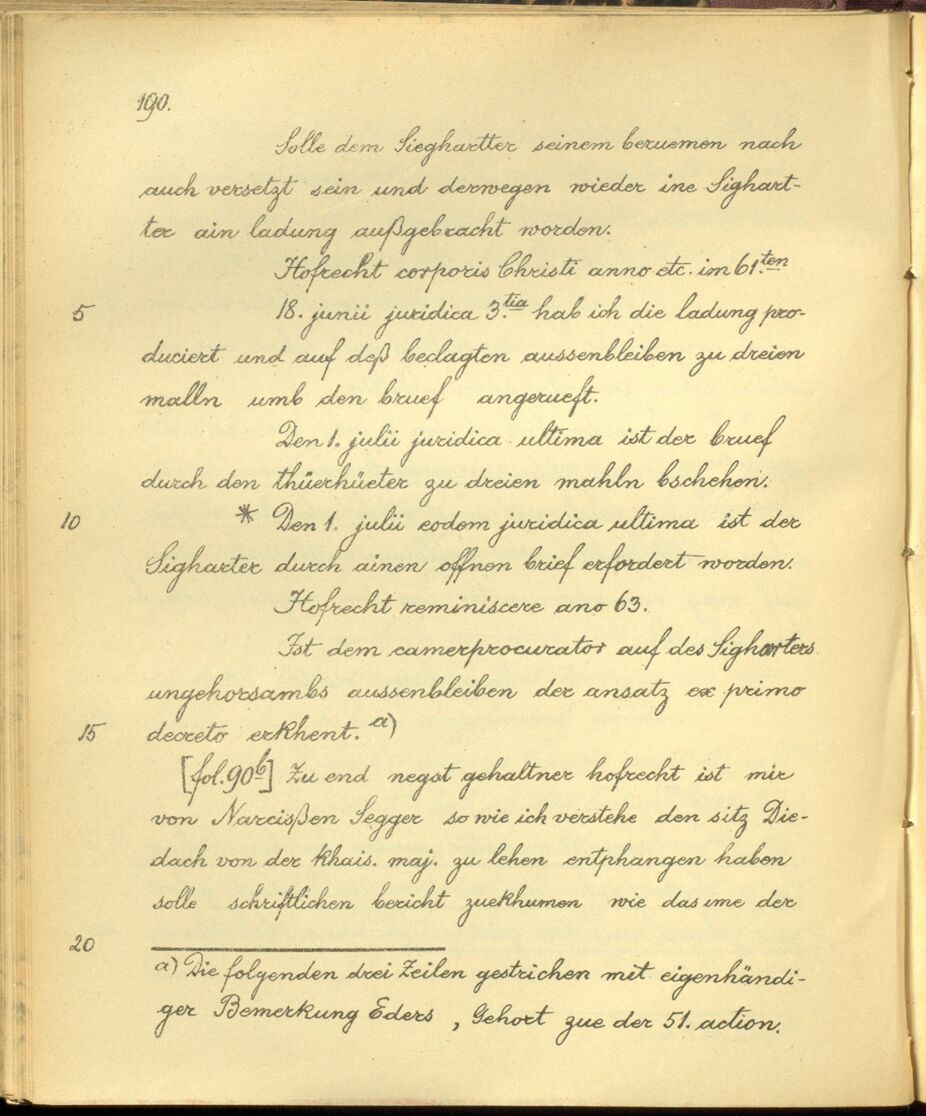 190.
Solle dem Sieghartter seinem beruemen nach
auch versetzt sein und derwegen wieder ine Sighart-
ter ain ladung außgebracht worden.
Hofrecht corporis Christi anno etc. im 61.ten
5 18. junii juridica 3.tia hab ich die ladung pro-
duciert und auf deß beclagten aussenbleiben zu dreien
malln umb den bruef angerueft.
Den 1. julii juridica ultima ist der bruef
durch den thüerhüeter zu dreien mahln bschehen.
10 * Den 1. julii eodem juridica ultima ist der
Sigharter durch ainen offnen brief erfordert worden.
Hofrecht reminiscere ano 63.
Ist dem camerprocurator auf des Sigharters
ungehorsambs aussenbleiben der ansatz ex primo
15 decreto erkhent. a)
[fol. 90b] Zu end negst gehaltner hofrecht ist mir
von Narcißen Segger so wie ich verstehe den sitz Die-
dach von der khais. maj. zu lehen entphangen haben
solle schriftlichen bericht zuekhumen wie das ime der
20
a) Die folgenden drei Zeilen gestrichen mit eigenhändi-
ger Bemerkung Eders, Gehort zue der 51. action.